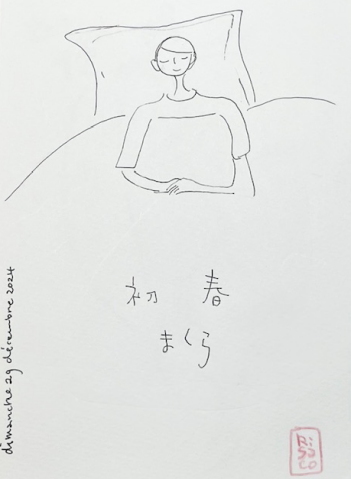 初 春
まくら
dimanche 29 décembre 2024